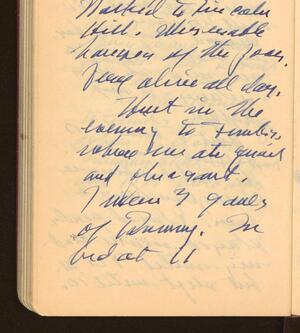 Walked to Lincoln
Hill. Miserable
of the poor.
Read alive all day.
Went in the
evening to
where we ate quail
and pheasant.
I won 3 games
of Rummy. In
bed at 11